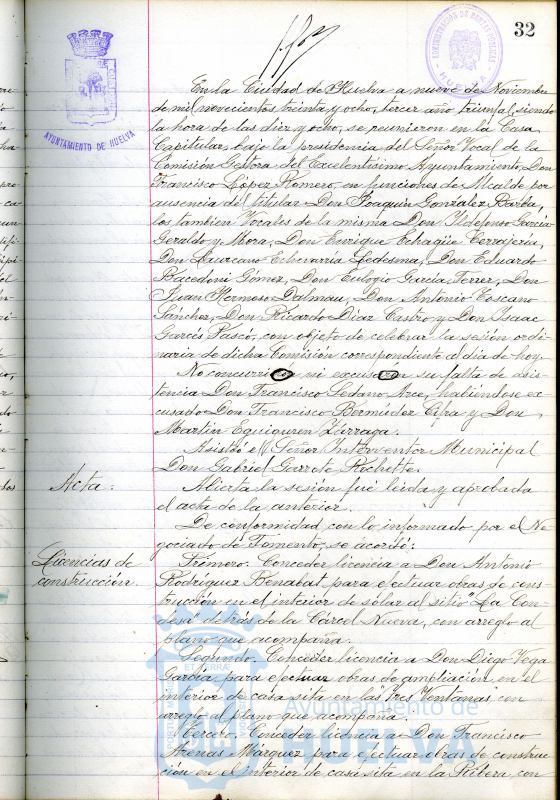 32
AYUNTAMIENTO DE HUELVA
HUELVA
En la Ciudad de Huelva a nueve de Noviembre
de mil novecientos treinta y ocho, tercer año triunfal, siendo
la hora de las diez y ocho, se reunieron en la Casa
Capitular, bajo la presidencia del Señor Vocal de la
Comisión Gestora del Excelentísimo Ayuntamiento, Don
Francisco López Romero, en funciones de Alcalde por
ausencia del titular Don Joaquín González Barba,
los tambien Vocales de la misma Don Ildefonso García
Geraldo y Mora, Don Enrique Echagüe Cerrajería,
Don Laureano Echevarría Ledesma, Don Eduardo
Bacedoni Gómez, Don Eulogio García Ferrer, Don
Juan Hermoso Dalmau, Don Antonio Toscano
Sánchez, Don Ricardo Díaz Castro y Don Isaac
Garcés Pascó, con objeto de celebrar la sesión ordi-
naria de dicha Comisión correspondiente al día de hoy.
No concurrió ni excusó su falta de asis-
tencia Don Francisco Sedano Arce, habiéndose ex-
cusado Don Francisco Bermúdez Cifra y Don
Martín Equiguren Lizrraga.
Asistió el Señor Interventor Municipal
Don Gabriel Garrote Rochette.
Acta:
Abierta la sesión fué leída y aprobada
el acta de la anterior.
De conformidad con lo informado por el Ne-
gociado de Fomento, se acordó:
Licencias de
construcción.
Primero. Conceder licencia a Don Antonio
Rodríguez Benabat para efectuar obras de cons-
trucción en el interior de solar al sitio "La Con-
desa" detrás de la Cárcel Nueva, con arreglo al
plano que acompaña.
Segundo. Conceder licencia a Don Diego Vega
García para efectuar obras de ampliación en el
interior de casa sita en las "Tres Ventanas" con
arreglo al plano que acompaña.
Tercero. Conceder licencia a Don Francisco
Arenas Márquez para efectuar obras de construc-
ción en el interior de casa sita en la Ribera, con
Ayuntamiento de
HUELVA